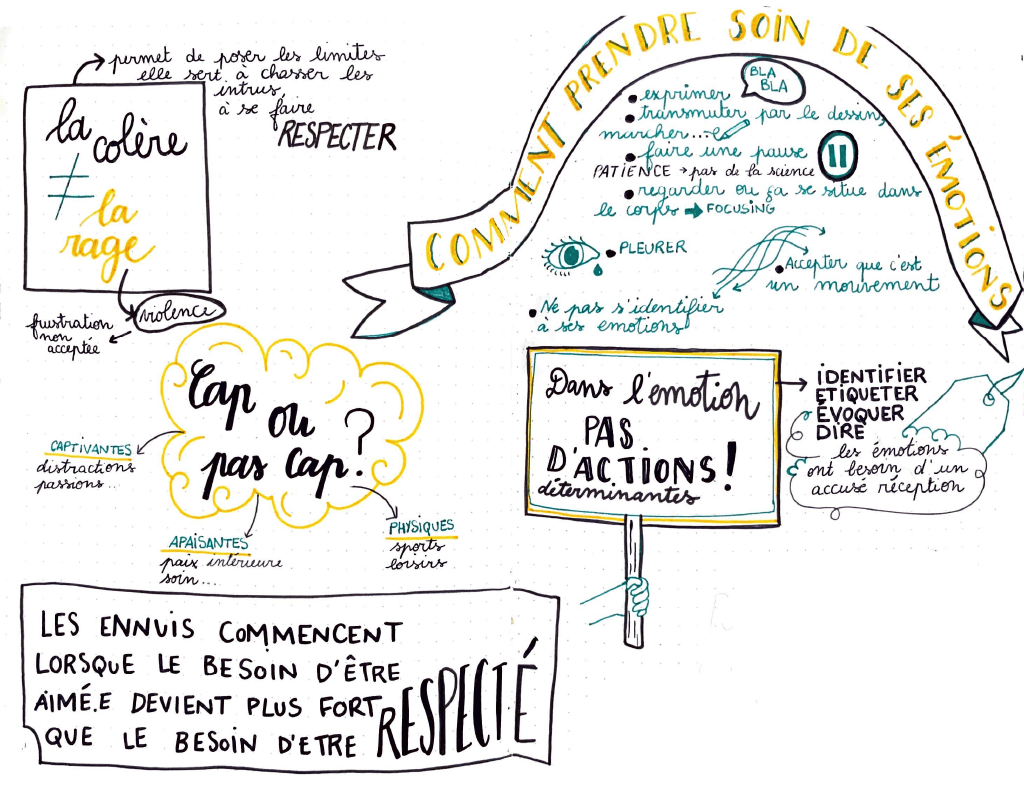 permet de poser les limites
elle sert à chasser les
intrus,
à se faire
RESPECTER
la colère
≠
la
rage
violence
frustration
non
acceptée
Cap
ou
pas Cap?
CAPTIVANTES
distractions
passions..
APAISANTES
paix intérieure
soin...
PHYSIQUES
sports
loisirs
LES ENNUIS COMMENCENT
LORSQUE LE BESOIN D'ÊTRE
AIMÉ.E DEVIENT PLUS FORT
QUE LE BESOIN D'ETRE RESPECTÉ
COMMENT PRENDRE SOIN DE SES ÉMOTIONS
BLA
BLA
• exprimer
• transmuter par le dessin,
marcher...
• faire une pause
PATIENCE → pas de la science
• regarder ou ça se situe dans
le corps → FOCUSING
• PLEURER
• Accepter que c'est
un mouvement
• Ne pas s'identifier
à ses émotions
Dans l'émotion
PAS
D'ACTIONS!
déterminantes
IDENTIFIER
ETIQUETER
ÉVOQUER
DIRE
les émotions
ont besoin d'un
accusé réception